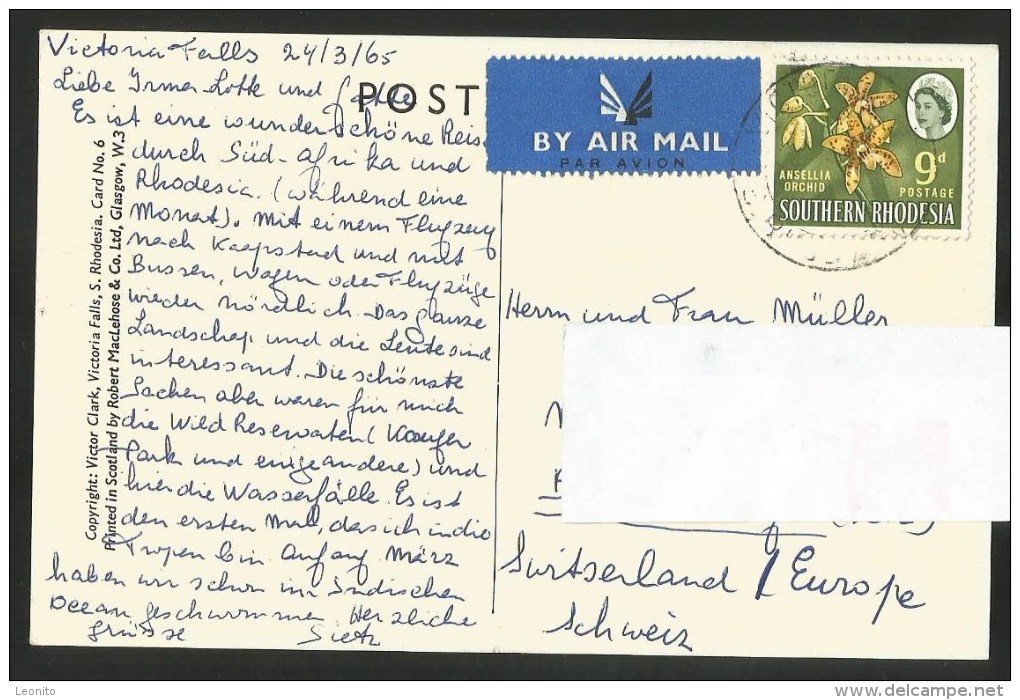 Victoria Falls 24/3/65
Liebe Irma Lotte und
Es ist eine wunderschöne Reise
durch Süd-Afrika und
Rhodesia. (während eine
Monat). Mit einem Flugzeug
nach Kaapstad und mit
Bussen, wagen oder Flugzüge
wieder nördlich. Das ganze
Landschap und die Leute sind
interessant. Die schönste
Sachen aber waren für mich
die Wild Reservaten (
Park und einige andere) und
hier die Wasserfälle. Es ist
den ersten Mal, das ich in die
Tropen bin. Anfang März
haben wir schon im Indischen
Ocean geschwommen Herzliche
Grüsse Sietz
POST
Copyright: Victor Clark, Victoria Falls, S. Rhodesia. Card No. 6
Printed in Scotland by Robert MacLehose & Co. Ltd, Glasgow, W.3
BY AIR MAIL
PAR AVION
ANSELLIA
ORCHID
9d
POSTAGE
SOUTHERN RHODESIA
Herrn und Frau Müller
Switserland / Europe
Schweiz
Leonito
delcampe.net